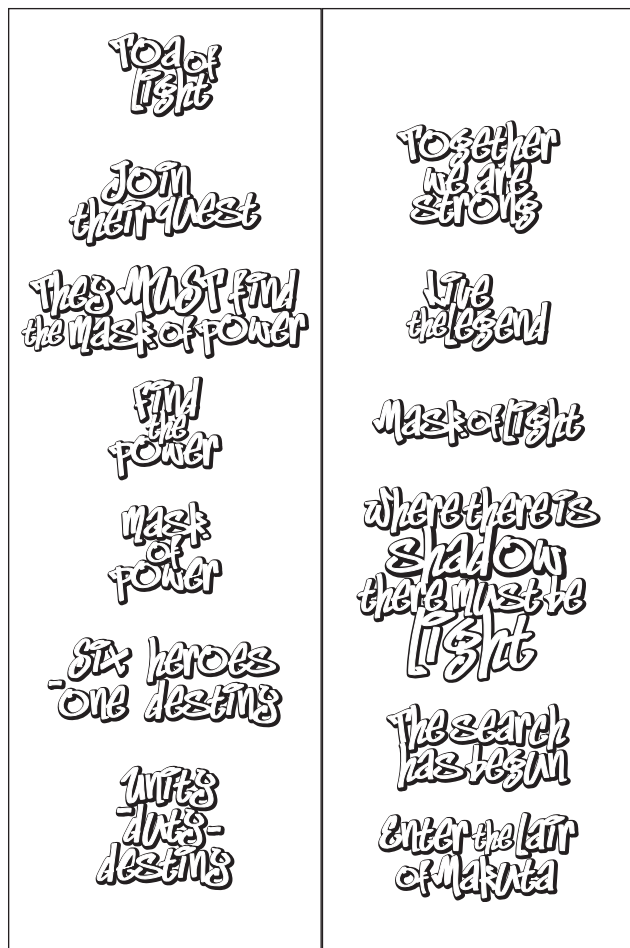 Toa of
light
Join
their quest
They MUST find
the mask of power
find
the
power
mask
of
power
Six heroes
-one destiny
unity
-duty-
destiny
Together
we are
strong
Live
the legend
Mask of light
where there is
shadow
there must be
light
The search
has begun
Enter the lair
of Makuta